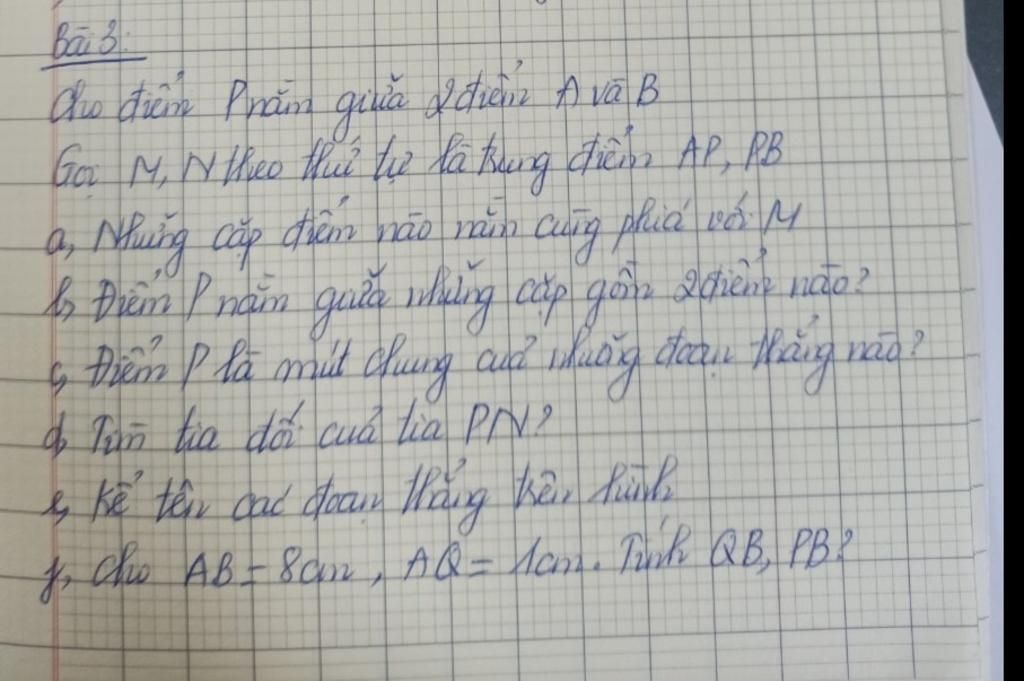 Bài 3:
Cho điểm P nằm giữa 2 điểm A và B
Gọi M, N theo thứ tự là trung điểm AP, PB
a, Những cặp điểm nào nằm cùng phía với M
b, Điểm P nằm giữa những cặp gồm 2 điểm nào?
c, Điểm P là mút chung của những đoạn thẳng nào?
d, Tìm tia đối của tia PN?
e, Kể tên các đoạn thẳng trên hình
f, Cho AB = 8cm, AQ = 1cm. Tính QB, PB?